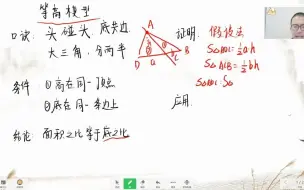 等高模型
口诀：头碰头，底共边
大三角，分两半
条件 ①高在同一顶点
②底在同一条边上
结论：面积之比等于底之比
A
D
B
C
a
b
h
证明：假设法
S△ADC=½ah
S△ACB=½bh
S△ADC:S△
应用